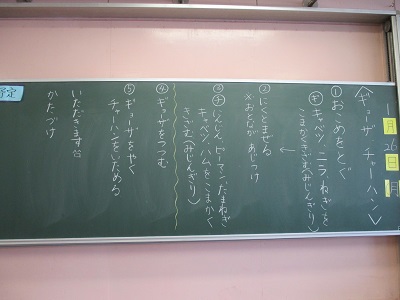 1月26日月
〈ギョーザ チャーハン〉
①おこめをとぐ
㋖キャベツ、ニラ、ねぎを
こまかくきざむ(みじんぎり)
②にくとまぜる
※おとなが あじつけ
③㋠にんじん、ピーマン、たまねぎ
キャベツ、ハムをこまかく
きざむ(みじんぎり)
④ギョーザをつつむ
⑤ギョーザをやく
チャーハンをいためる
いただきます
かたづけ
予定